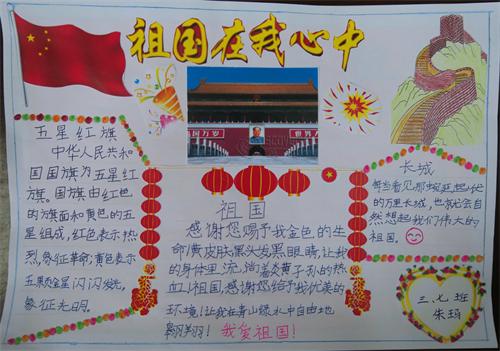 祖国在我心中
五星红旗
中华人民共和
国国旗为五星红
旗。国旗由红色
的旗面和黄色的五
星组成,红色表示热
烈,象征革命;黄色表示
五颗金星闪闪发光,
象征光明。
祖国
感谢您赐予我金色的生
命!黄皮肤,黑头发,黑眼睛,让我
的身体里流淌着炎黄子孙的热
血!祖国,感谢您给予我优美的
环境!让我在青山绿水中自由地
翱翔!
我爱祖国!
长城
每当看见那蜿蜒起伏
的万里长城,也就会自
然想起我们伟大的
祖国。
三、七班
朱